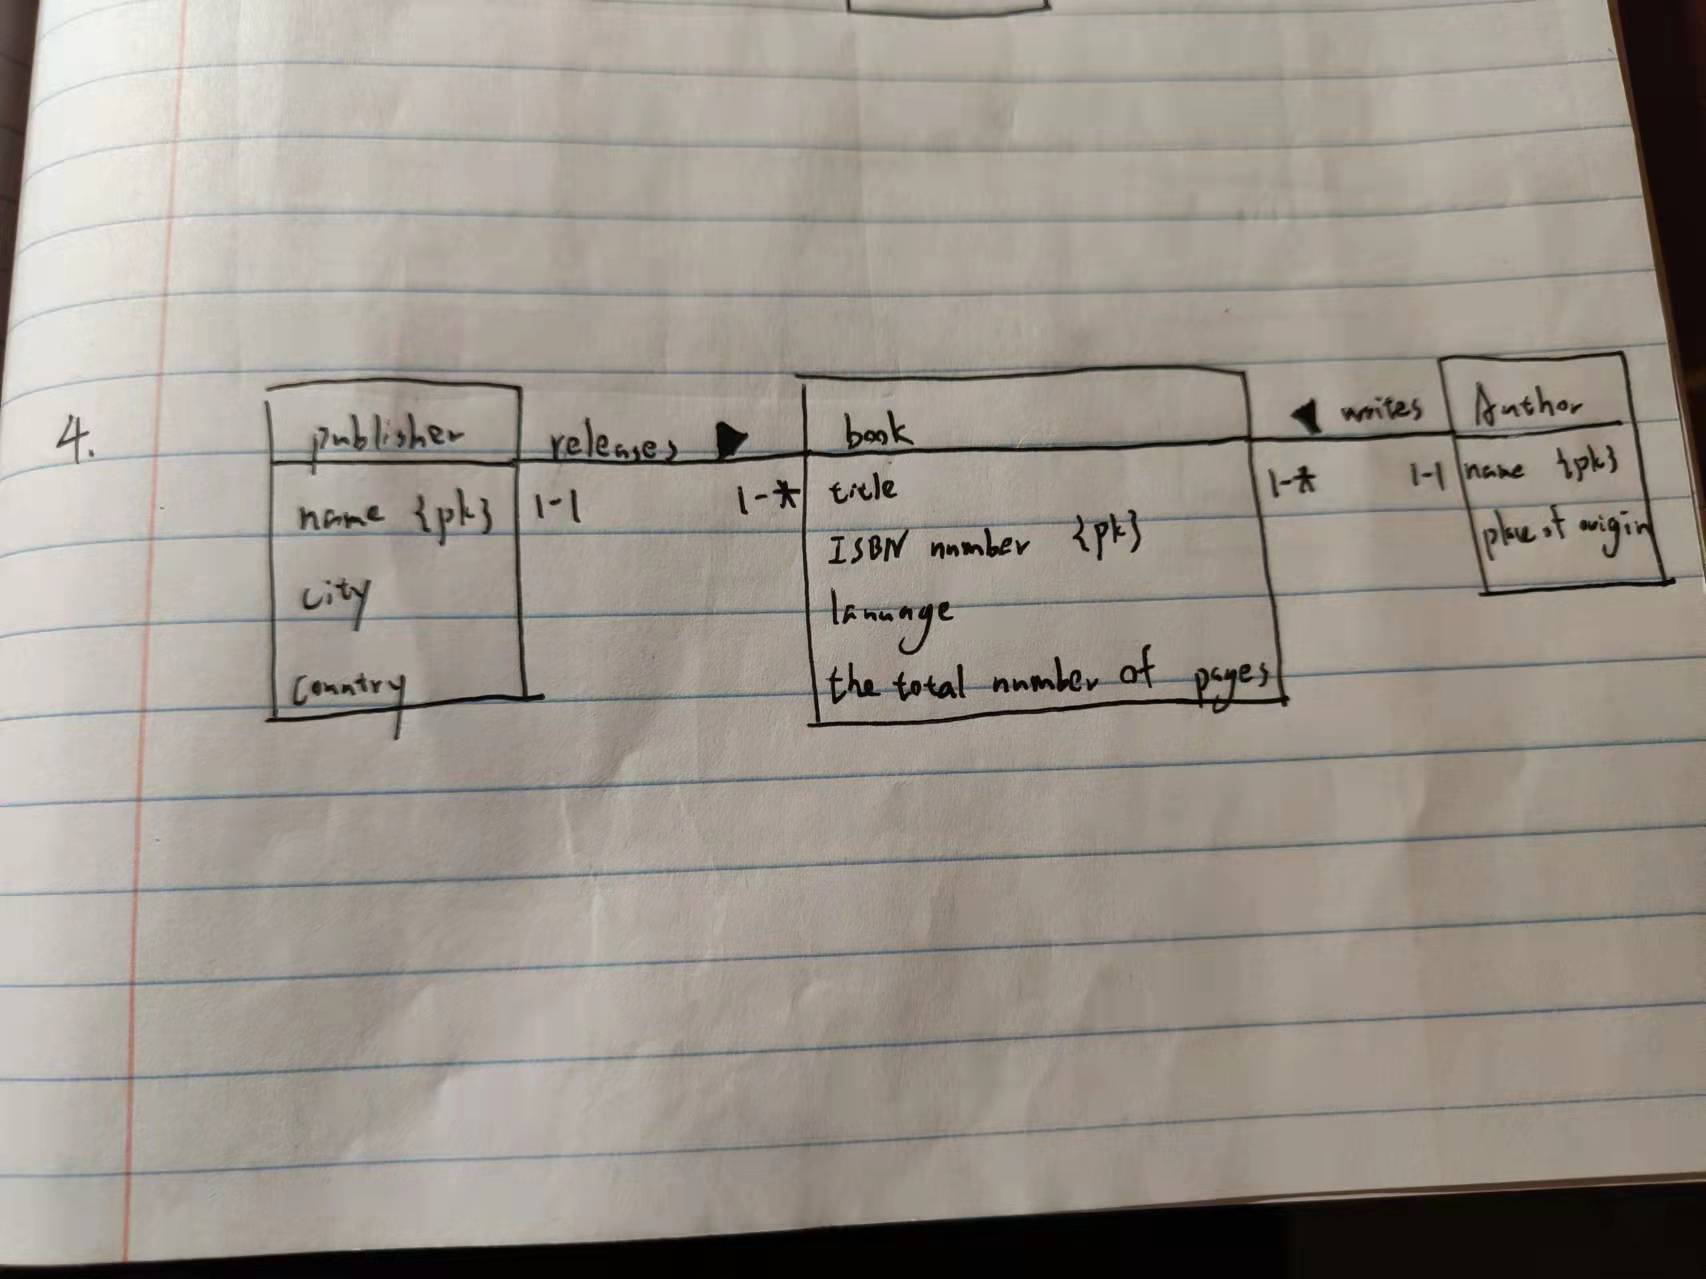 4.
publisher
name {pk}
city
country
releases ▶
1-1
1-*
book
title
ISBN number {pk}
lanuage
the total number of pages
◀ writes
1-*
1-1
Author
name {pk}
place of origin